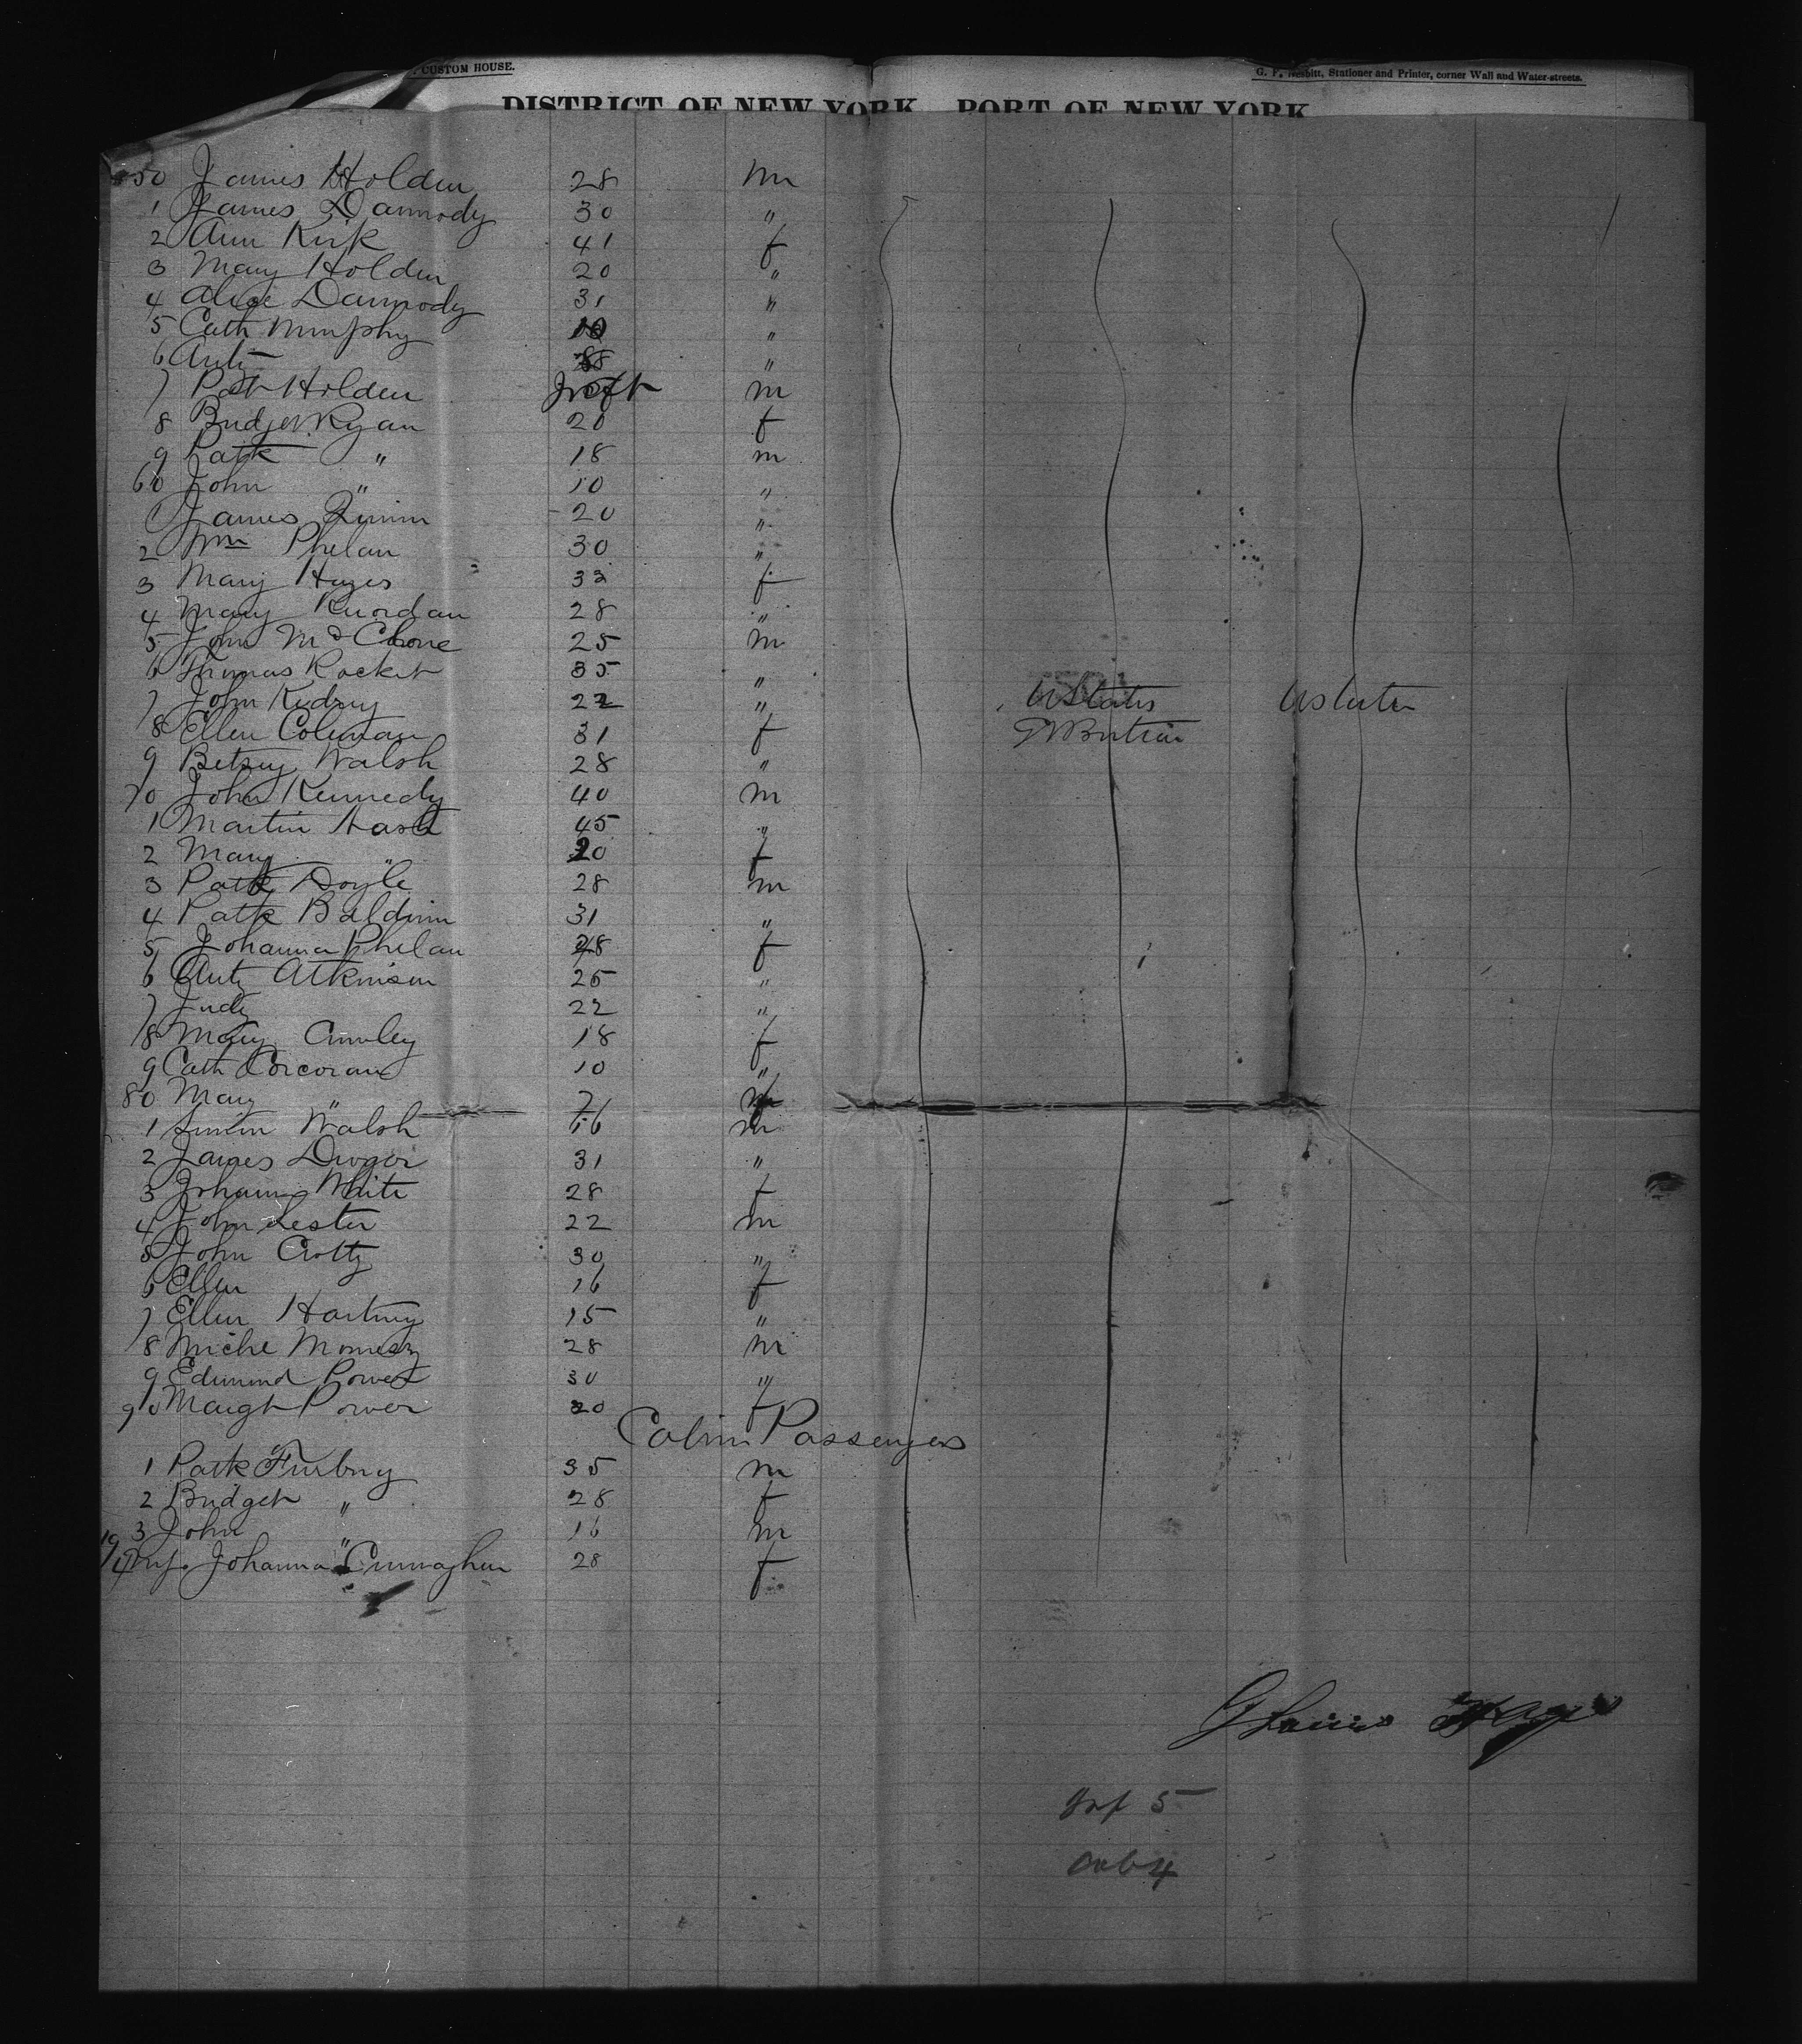 CUSTOM HOUSE.
G. F. Nesbitt, Stationer and Printer, corner Wall and Water-streets.
DISTRICT OF NEW YORK PORT OF NEW YORK
50 James Holden 28 m
1 James Darmody 30 "
2 Ann Kirk 41 f
3 Mary Holden 20 "
4 Alice Darmody 31 "
5 Cath Murphy 10 "
6 "
7 Pat Holden Inft m
8 Bridget Ryan 20 f
9 Patk " 18 m
60 John " 10 "
1 James 20 "
2 Wm Phelan 30 "
3 Mary Hayes 32 f
4 Mary Riordan 28 "
5 John 25 m
6 Thomas Rocket 35 "
7 John 22 " UStates UStates
8 Ellen Coleman 31 f GBritain
9 Betsey Walsh 28 "
70 John Kennedy 40 m
1 Martin 45 "
2 Mary " 20 f
3 Patk Doyle 28 m
4 Patk Baldwin 31 "
5 Johanna Phelan 28 f
6 Atkinson 25 "
7 Judy 22 "
8 Mary 18 f
9 Cath Corcoran 10 "
80 Mary " 7 f
1 Walsh 16 m
2 James 31 "
3 Johanna White 28 f
4 John Lester 22 m
5 John Crotty 30 "
6 Ellen 16 f
7 Ellen Hartney 15 "
8 28 m
9 Edmund Power 30 "
90 Margt Power 20 f
Cabin Passengers
1 Patk 35 m
2 Bridget " 28 f
3 John " 16 m
Johanna 28 f
Inf 5
Cab 4